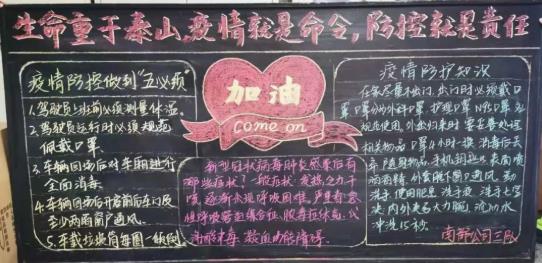 生命重于泰山,疫情就是命令,防控就是责任
疫情防控做到"五必须"
1.驾驶员上班前必须测量体温.
2.驾驶员运行时必须规范
佩戴口罩
3.车辆回场后对车辆进行
全面消毒
4.车辆回场后开着前后车门及
至少两扇窗户通风.
5.车载垃圾筒每圈一倾倒
加油
come on
新型冠状病毒肺炎感染后有
哪些症状?一般症状:发热、乏力、干
咳、逐渐出现呼吸困难,严重者急
性呼吸窘迫综合征、脓毒症休克、代
谢酸中毒、凝血功能障碍.
疫情防护知识
在家尽量不出门,出门时必须戴口
罩
规范使用,外出归来时要妥善处理
相关物品,口罩4小时一换,消毒后丢
弃,随身物品、手机钥匙
酒精,外套脱下
洗手使用肥皂、洗手液,洗手七字
诀:内外夹弓大力腕,流动水
冲洗15秒.
南郡公司三队